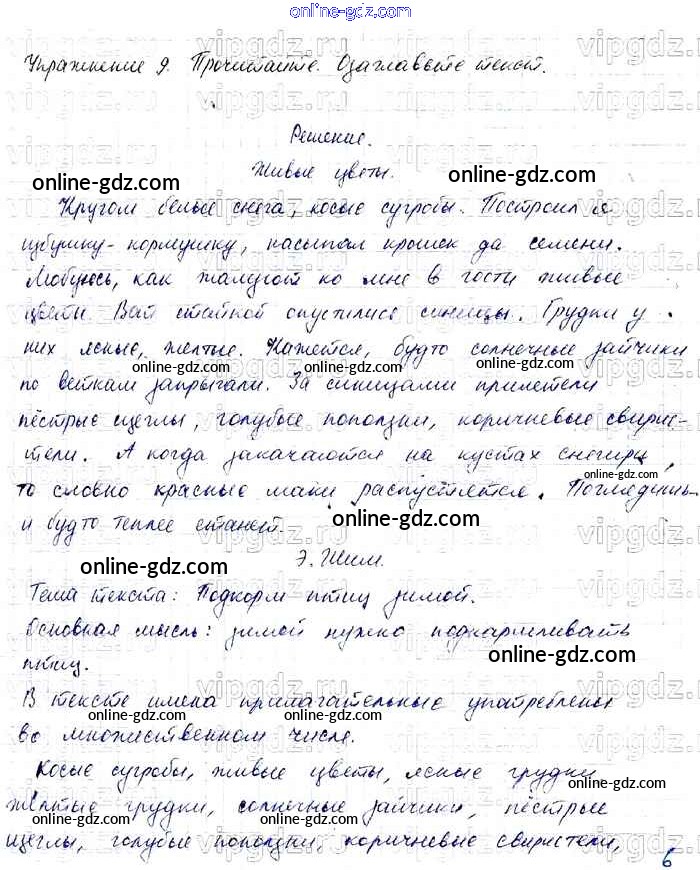 online-gdz.com
Упражнение 9. Прочитайте. Озаглавьте текст.
Решение.
Живые цветы.
online-gdz.com online-gdz.com
Кругом белые снега, косые сугробы. Построил я
избушку-кормушку, насыпал крошек да семени.
Любуюсь, как жалуют ко мне в гости живые
цветы. Вот стайкой опустились синицы. Грудки у
них ясные, желтые. Кажется, будто солнечные зайчики
online-gdz.com online-gdz.com
по веткам запрыгали. За синицами прилетели
пёстрые щеглы, голубые поползни, коричневые свирис-
тели. А когда закачаются на кустах снегири,
online-gdz.com
то словно красные маки распустятся. Поглядишь-
и будто теплее станет.
online-gdz.com
Э. Шим.
online-gdz.com online-gdz.com
Тема текста: Подкорм птиц зимой.
Основная мысль: зимой нужно подкармливать
птиц.
online-gdz.com
В тексте имена прилагательные употреблены
во множественном числе.
online-gdz.com online-gdz.com
Косые сугробы, живые цветы, ясные грудки
желтые грудки, солнечные зайчики, пёстрые
online-gdz.com online-gdz.com
щеглы, голубые поползни, коричневые свиристели,
6